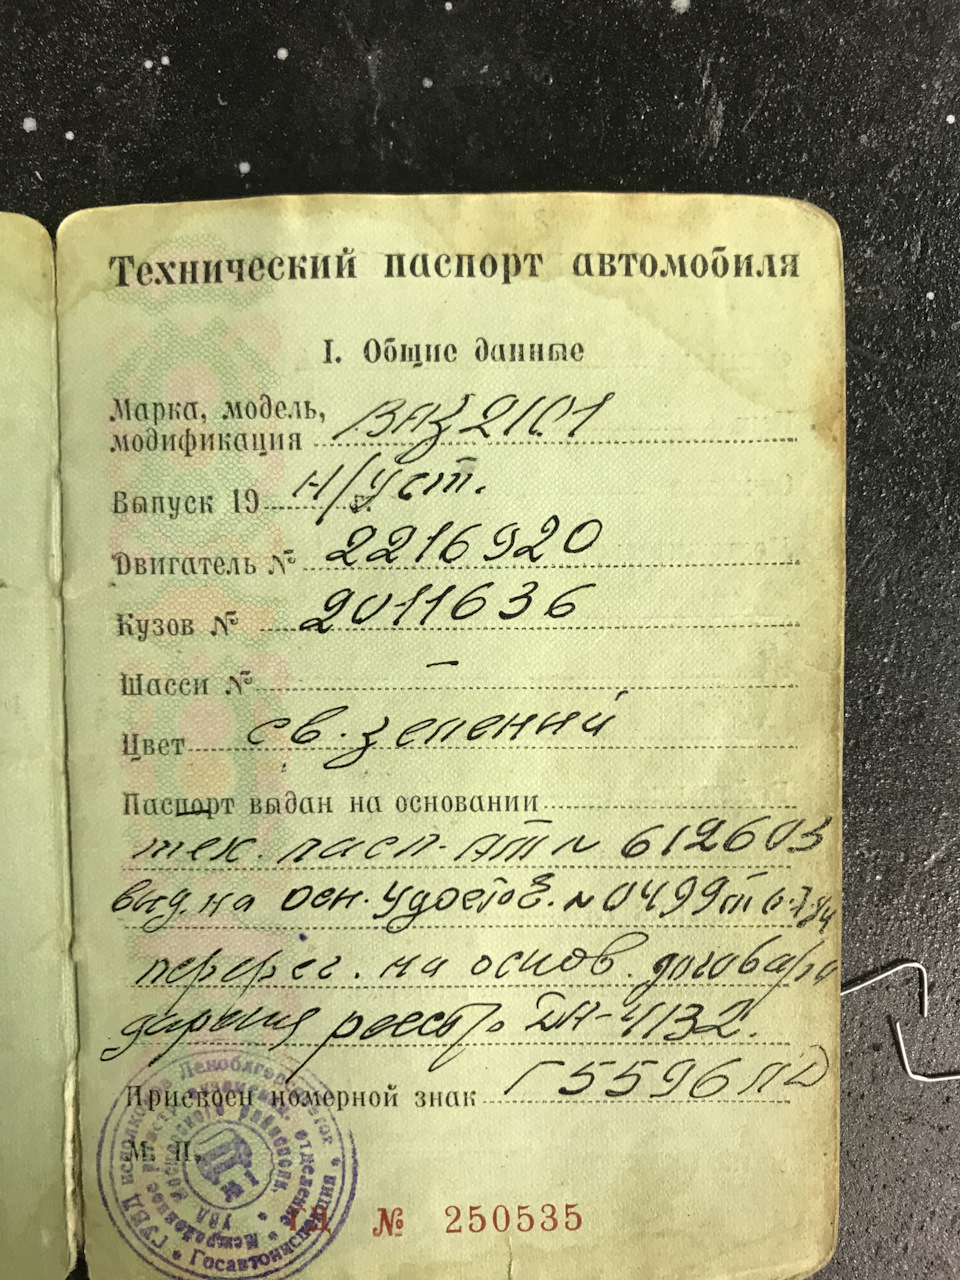 Технический паспорт автомобиля
I. Общие данные
Марка, модель,
модификация ВАЗ 2101
Выпуск 19 н/уст.
Двигатель № 2216920
Кузов № 2011636
Шасси № —
Цвет св. зеленый
Паспорт выдан на основании
тех. пасп. АТ № 612603
выд. на осн. удостов. № 0499
перерег. на основ. договора
дарения реестр. 4132.
Присвоен номерной знак Г5596ЛД
М. П.
Госавтоинспекция
ГД № 250535